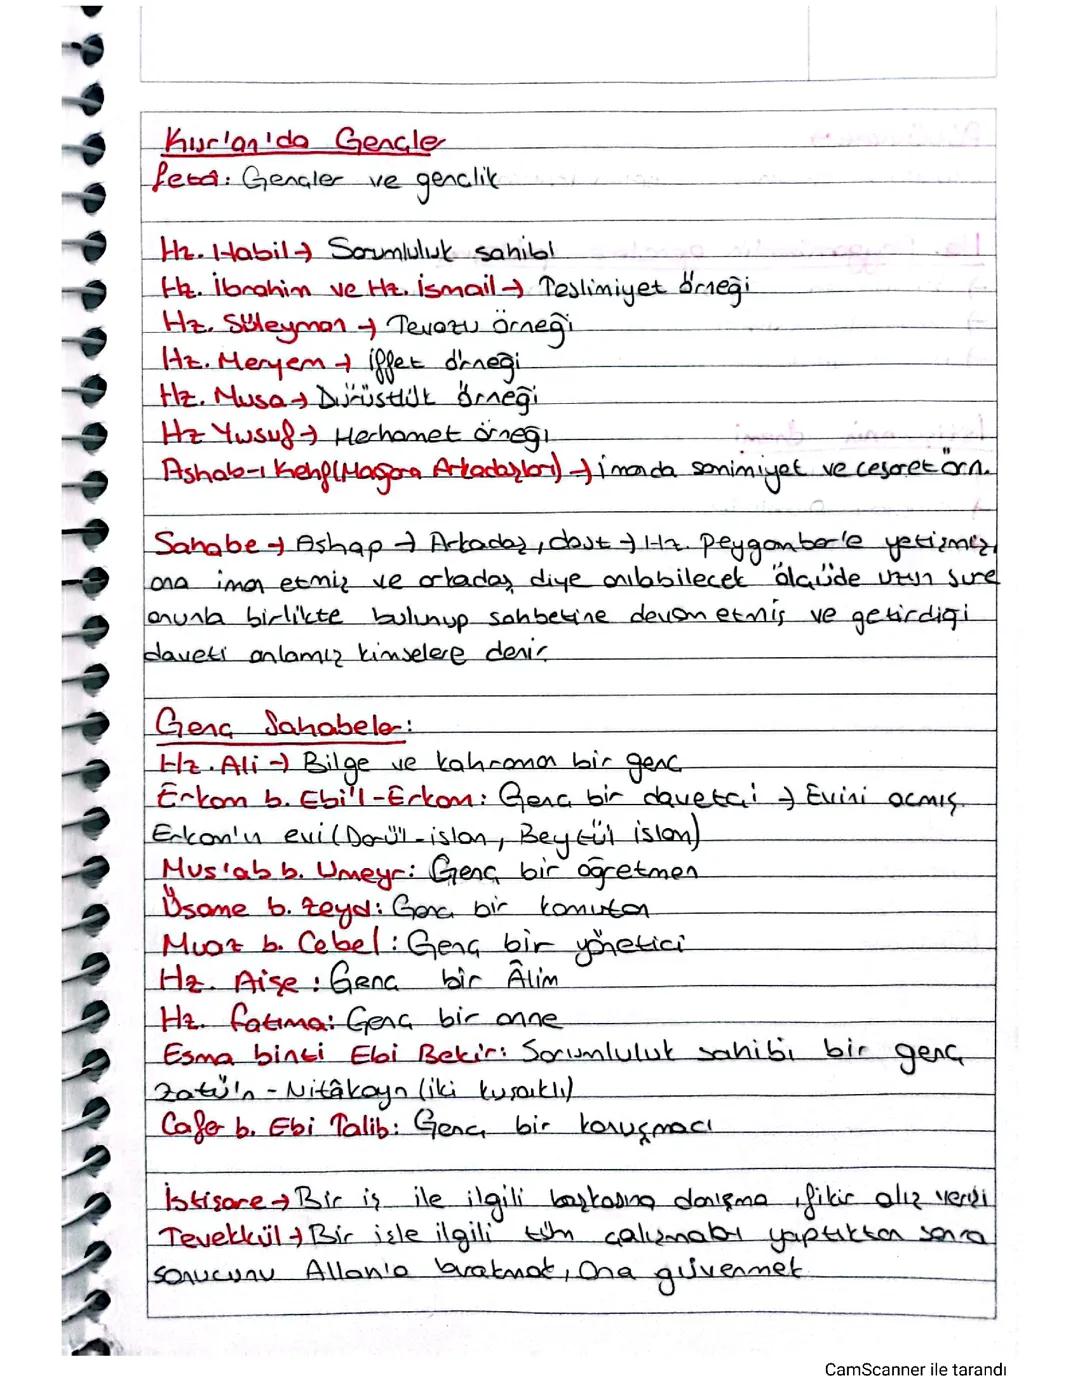 Kur'an'da Gençler
fetâ: Gençler ve gençlik
Hz. Habil → Sorumluluk sahibi
Hz. İbrahim ve Hz. İsmail → Teslimiyet örneği
Hz. Süleyman → Tevazu örneği
Hz. Meryem → iffet örneği
Hz. Musa → Dürüstlük örneği
Hz Yusuf → Merhamet örneği
Ashab-ı Kehf (Mağara Arkadaşları) → imanda samimiyet ve cesaret örn.
Sahabe → Ashap → Arkadaş, dost → Hz. Peygamber'e yetişmiş,
ona iman etmiş ve arkadaş diye anılabilecek ölçüde uzun süre
onunla birlikte bulunup sohbetine devam etmiş ve getirdiği
daveti anlamış kimselere denir
Genç Sahabeler:
Hz. Ali → Bilge ve kahraman bir genç
Erkam b. Ebi'l-Erkam: Genç bir davetçi → Evini açmış.
Erkam'ın evi (Darü'l-islam, Beytül islam)
Mus'ab b. Umeyr: Genç bir öğretmen
Üsame b. Zeyd: Genç bir komutan
Muaz b. Cebel: Genç bir yönetici
Hz. Aişe: Genç bir Âlim
Hz. Fatıma: Genç bir anne
Esma binti Ebi Bekir: Sorumluluk sahibi bir genç
Zatü'n-Nitâkayn (iki kuşaklı)
Cafer b. Ebi Talib: Genç bir konuşmacı
İstişare → Bir iş ile ilgili başkasına danışma, fikir alış verişi
Tevekkül → Bir işle ilgili tüm çalışmaları yaptıktan sonra
sonucunu Allah'a bırakmak, Ona güvenmek
CamScanner ile tarandı